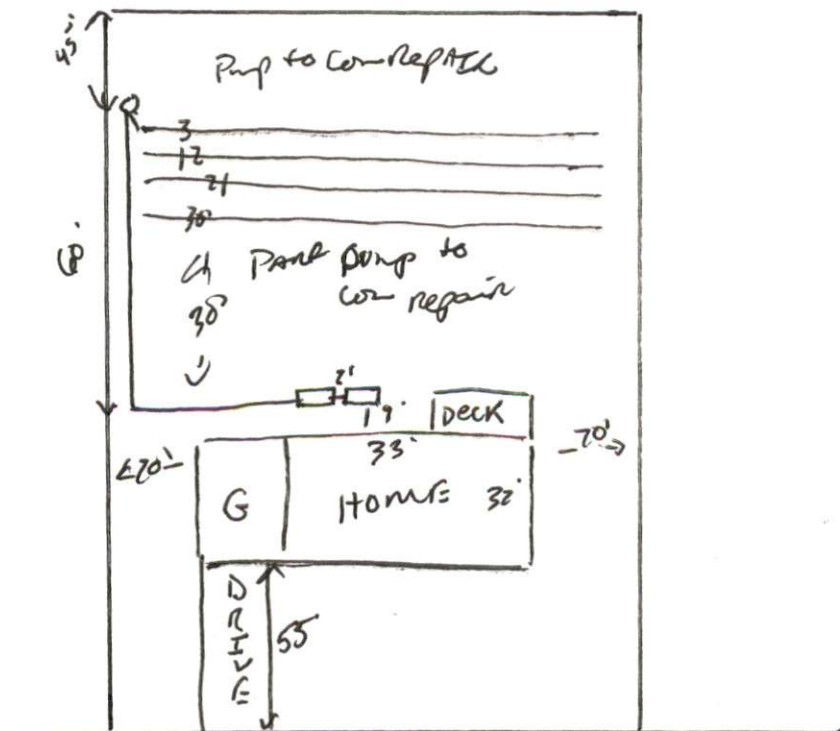 45'
Pump to Con RepAIR
3
12
21
30
PART pump to
con repair
30'
2'
9'
DECK
33'
20'
20'
G
HOME 32'
DRIVE
55'